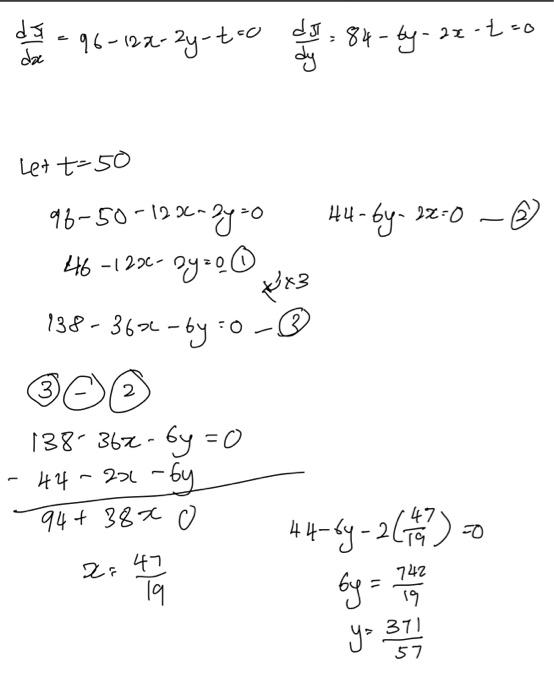 dπ/dx = 96 - 12x - 2y - t = 0   dπ/dy = 84 - 6y - 2x - t = 0
Let t = 50
96 - 50 - 12x - 2y = 0   44 - 6y - 2x = 0 — ②
46 - 12x - 2y = 0 ①
×3
138 - 36x - 6y = 0 — ③
③ - ②
138 - 36x - 6y = 0
- 44 - 2x - 6y
94 + 38x 0
x = 47/19
44 - 6y - 2(47/19) = 0
6y = 742/19
y = 371/57